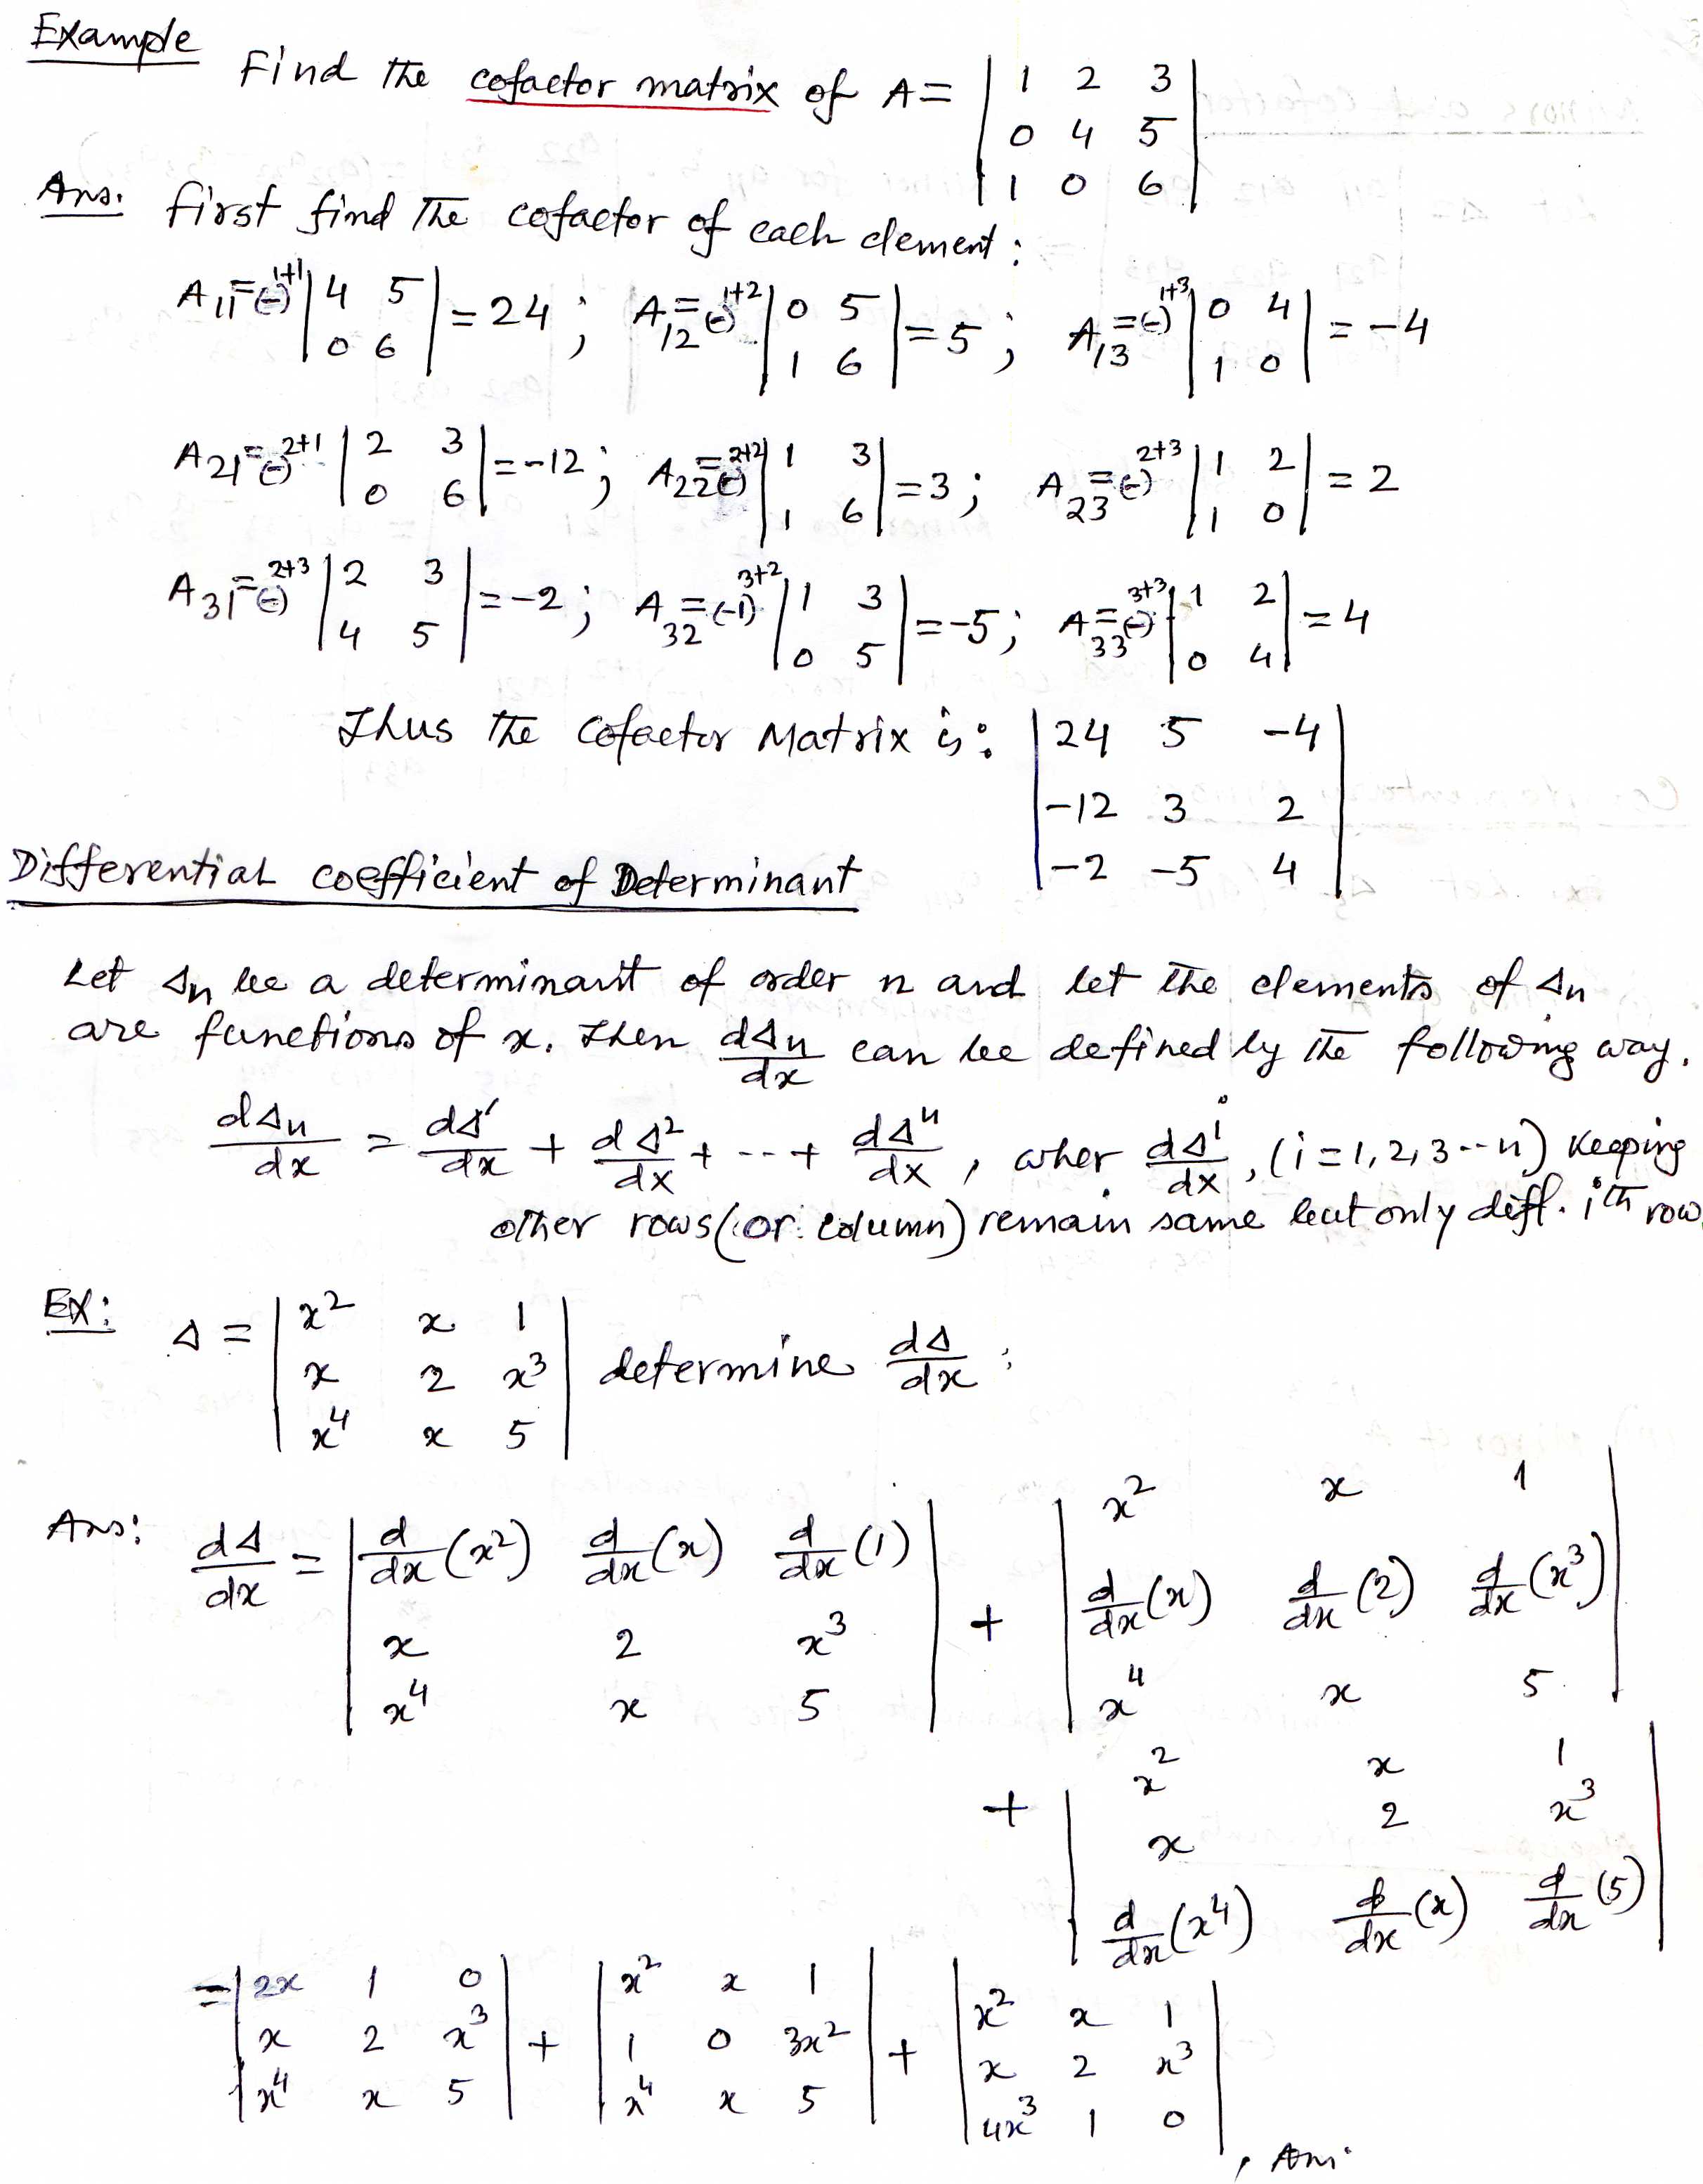 Example
Find the cofactor matrix of A = | 1 2 3 |
| 0 4 5 |
| 1 0 6 |
Ans. first find the cofactor of each element :
A11 = (-)^1+1 | 4 5 | = 24 ; A12 = (-)^1+2 | 0 5 | = 5 ; A13 = (-)^1+3 | 0 4 | = -4
| 0 6 | | 1 6 | | 1 0 |
A21 = (-)^2+1 | 2 3 | = -12 ; A22 = (-)^2+2 | 1 3 | = 3 ; A23 = (-)^2+3 | 1 2 | = 2
| 0 6 | | 1 6 | | 1 0 |
A31 = (-)^2+3 | 2 3 | = -2 ; A32 = (-1)^3+2 | 1 3 | = -5 ; A33 = (-)^3+3 | 1 2 | = 4
| 4 5 | | 0 5 | | 0 4 |
Thus the Cofactor Matrix is : | 24 5 -4 |
| -12 3 2 |
| -2 -5 4 |
Differential coefficient of Determinant
Let Δn be a determinant of order n and let the elements of Δn
are functions of x. Then dΔn/dx can be defined by the following way.
dΔn/dx = dΔ'/dx + dΔ²/dx + --- + dΔⁿ/dx , wher dΔⁱ/dx , (i = 1, 2, 3 -- n) keeping
other rows (or column) remain same but only diff. ith row.
Ex: Δ = | x² x 1 |
| x 2 x³ | determine dΔ/dx :
| x⁴ x 5 |
Ans: dΔ/dx = | d/dx (x²) d/dx (x) d/dx (1) | + | x² x 1 |
| x 2 x³ | | d/dx (x) d/dx (2) d/dx (x³) |
| x⁴ x 5 | | x⁴ x 5 |
+ | x² x 1 |
| x 2 x³ |
| d/dx (x⁴) d/dx (x) d/dx (5) |
= | 2x 1 0 | + | x² x 1 | + | x² x 1 |
| x 2 x³ | | 1 0 3x² | | x 2 x³ |
| x⁴ x 5 | | x⁴ x 5 | | 4x³ 1 0 | , Ans.